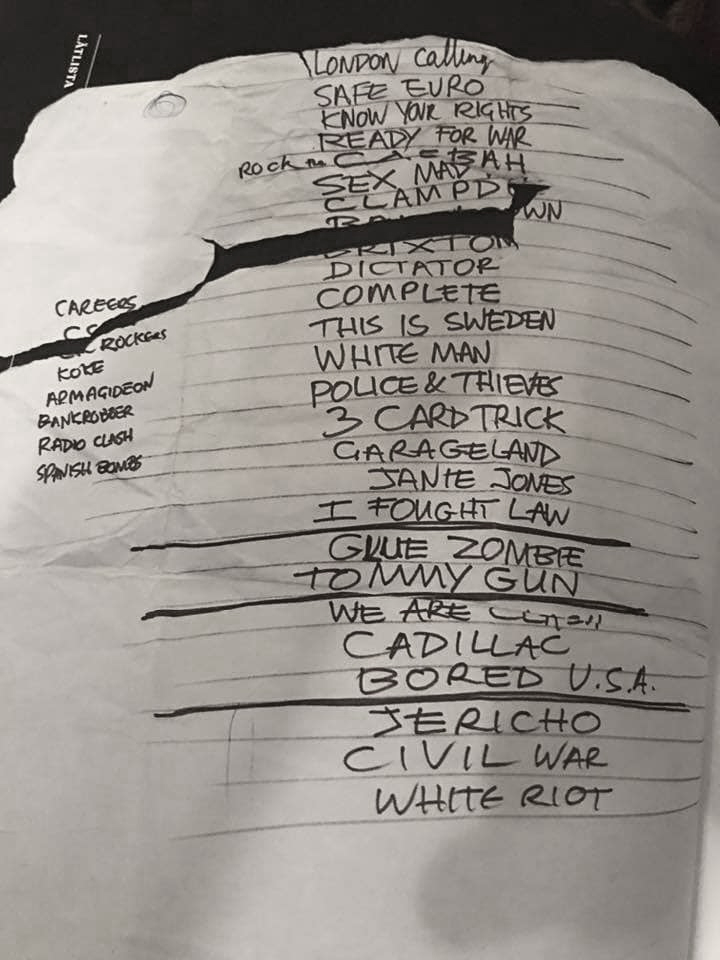 LÅTLISTA
LONDON Calling
SAFE EURO
KNOW YOUR RIGHTS
READY FOR WAR
ROCK THE CASBAH
SEX MAD
CLAMPDOWN
BRIXTON
DICTATOR
COMPLETE
THIS IS SWEDEN
WHITE MAN
POLICE & THIEVES
3 CARD TRICK
GARAGELAND
JANIE JONES
I FOUGHT LAW
GLUE ZOMBIE
TOMMY GUN
WE ARE CLASH
CADILLAC
BORED U.S.A.
JERICHO
CIVIL WAR
WHITE RIOT
CAREERS
ROCKERS
KOKE
ARMAGIDEON
BANKROBBER
RADIO CLASH
SPANISH BOMBS